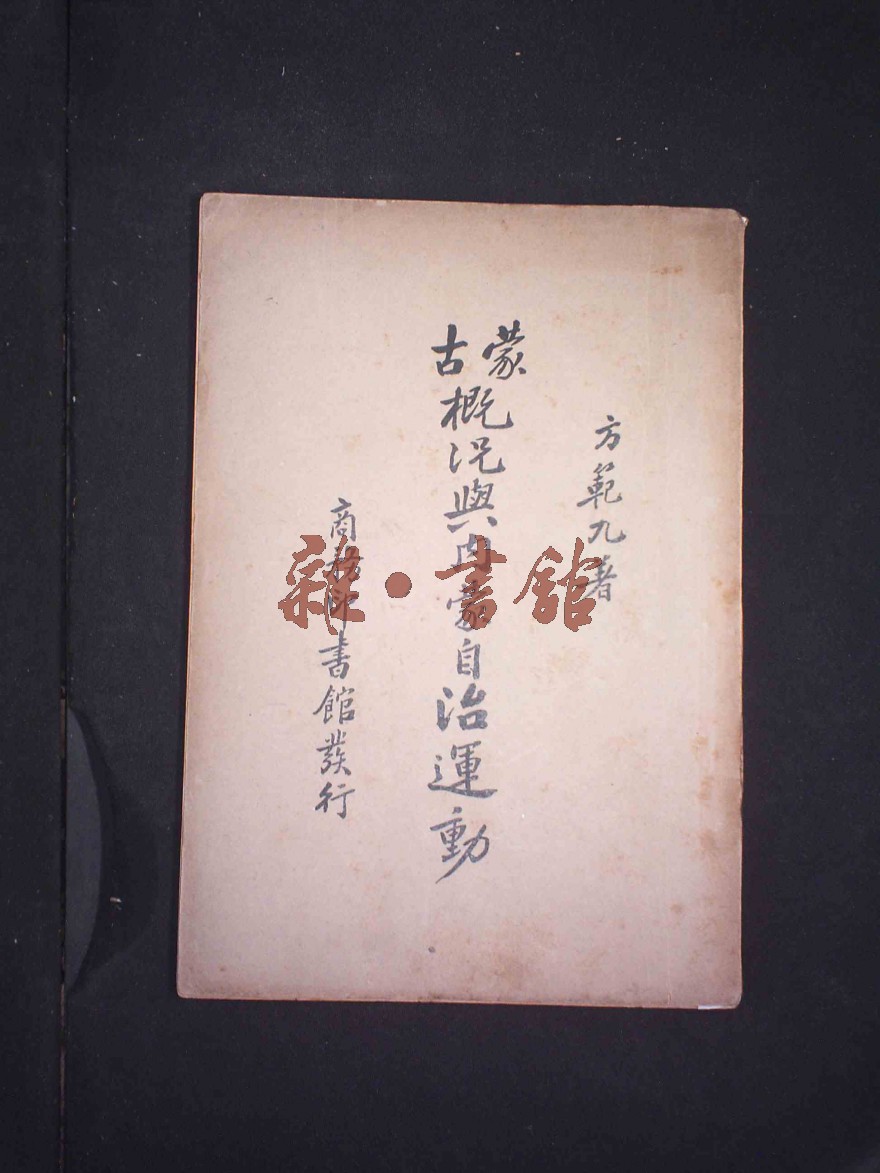 方範九著
蒙古概況與內蒙自治運動
商務印書館發行
雜·書館